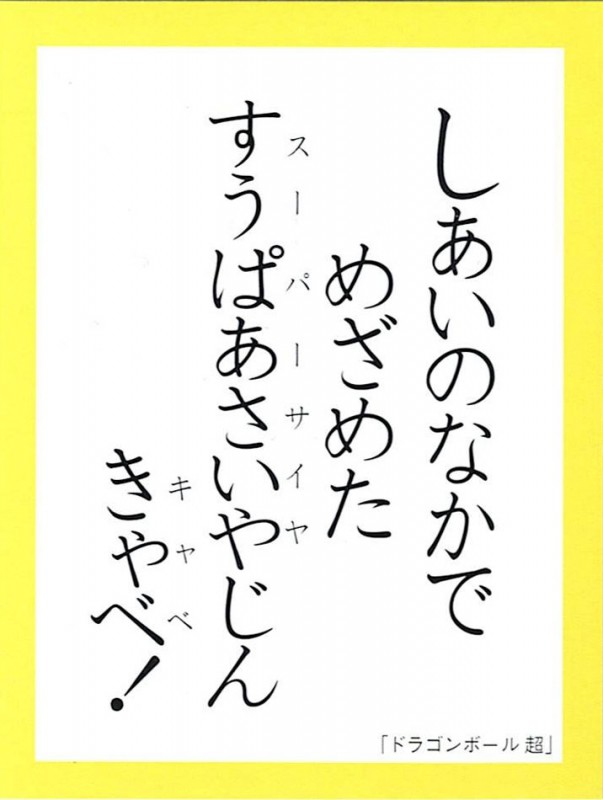 しあいのなかで
めざめた
すうぱあさいやじん
スーパーサイヤ
きゃべ!
キャベ
「ドラゴンボール 超」